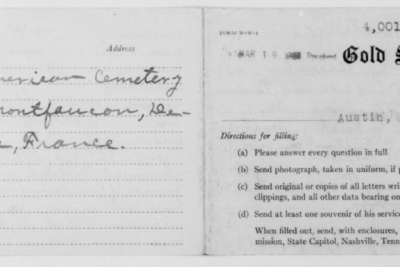 Address
merican Cemetery
ontfaucon, De-
, France.
FORM W-W-1
4,001
MAR 10
Gold S
Austin,
Directions for filling:
(a) Please answer every question in full.
(b) Send photograph, taken in uniform, if p
(c) Send original or copies of all letters wri
clippings, and all other data bearing on
(d) Send at least one souvenir of his servic
When filled out, send, with enclosures,
mission, State Capitol, Nashville, Tenn